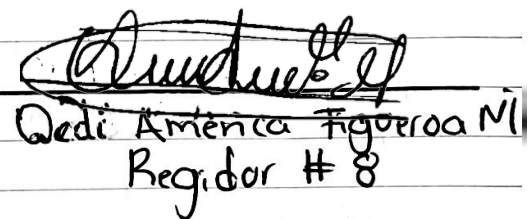 Dedi América Figueroa M
Regidor # 8